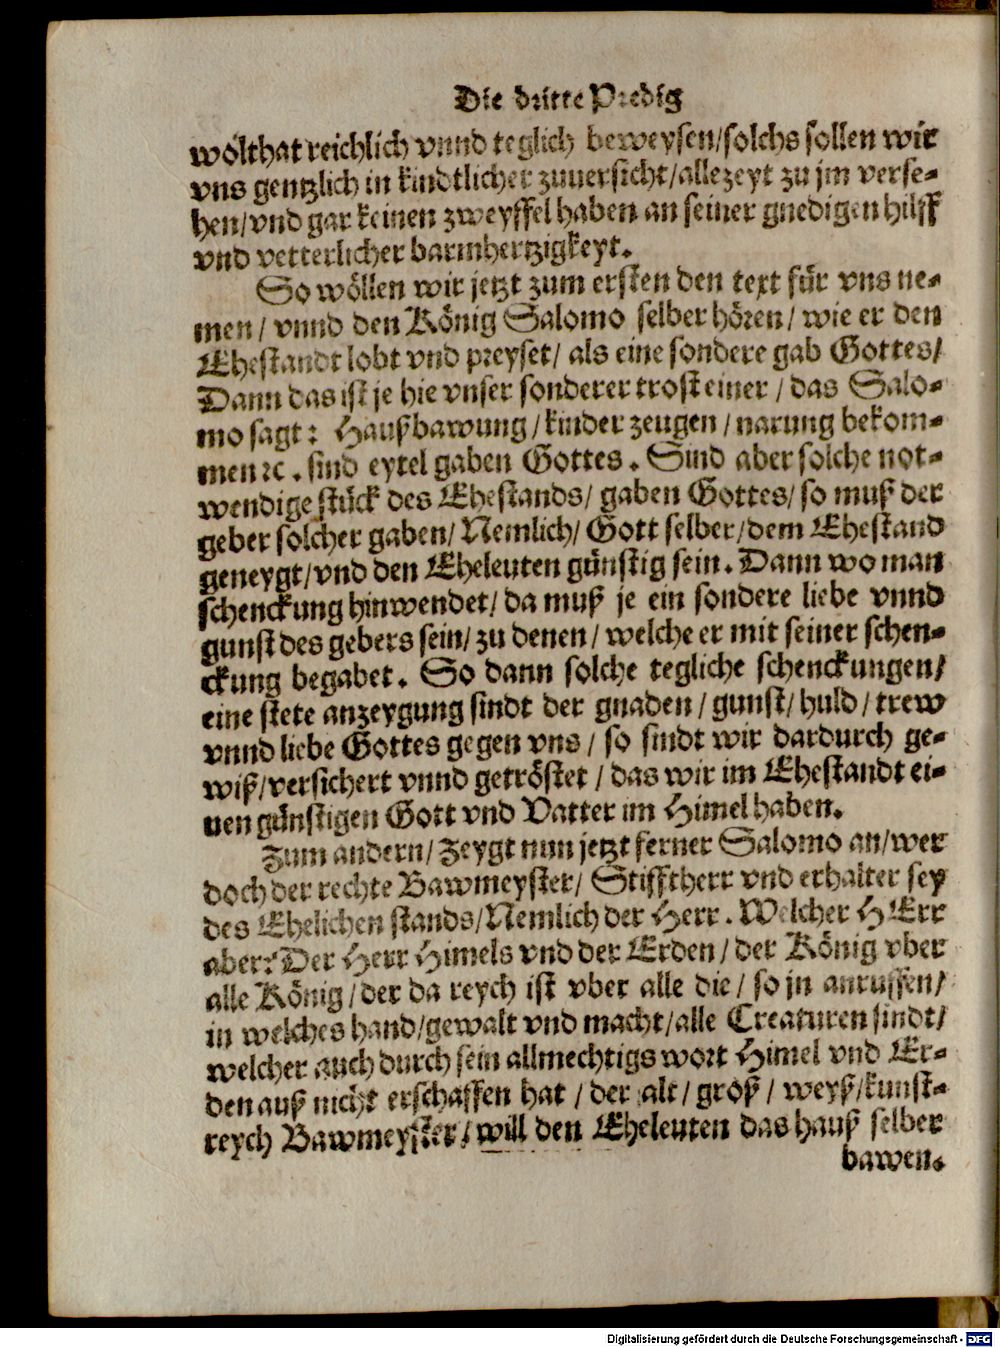 Die dritte Predig
wolthat reichlich vnnd teglich beweysen/solchs sollen wir
vns gentzlich in kindtlicher zuuersicht/allezeyt zu jm verse-
hen/vnd gar keinen zweyffel haben an seiner gnedigen hilff
vnd vetterlicher barmhertzigkeyt.
So wöllen wir jetzt zum ersten den text für vns ne-
men/ vnnd den König Salomo selber hören/ wie er den
Ehestandt lobt vnd preyset/ als eine sondere gab Gottes/
Dann das ist je hie vnser sonderer trost einer/ das Salo-
mo sagt: Haußbawung/kinder zeugen/narung bekom-
men ꝛc. sind eytel gaben Gottes. Sind aber solche not-
wendige stück des Ehestands/ gaben Gottes/ so muß der
geber solcher gaben/ Nemlich/ Gott selber/dem Ehestand
geneygt/vnd den Eheleuten günstig sein. Dann wo man
schenckung hinwendet/ da muß je ein sondere liebe vnnd
gunst des gebers sein/ zu denen/ welche er mit seiner schen-
ckung begabet. So dann solche tegliche schenckungen/
eine stete anzeygung sindt der gnaden/gunst/huld/trew
vnnd liebe Gottes gegen vns/ so sindt wir dardurch ge-
wiß/versichert vnnd getröstet/das wir im Ehestandt ei-
nen günstigen Gott vnd Vatter im Himel haben.
Zum andern/Zeygt nun jetzt ferner Salomo an/wer
doch der rechte Bawmeyster/ Stifftherr vnd erhalter sey
des Ehelichen stands/Nemlich der Herr. Welcher HErr
aber? Der Herr Himels vnd der Erden/der König vber
alle König/der da reych ist vber alle die/ so jn anruffen/
in welches hand/gewalt vnd macht/alle Creaturen sindt/
welcher auch durch sein allmechtigs wort Himel vnd Er-
den auß nicht erschaffen hat/der alt/groß/weyß/kunst-
reych Bawmeyster/will den Eheleuten das hauß selber
bawen.
Digitalisierung gefördert durch die Deutsche Forschungsgemeinschaft - DFG